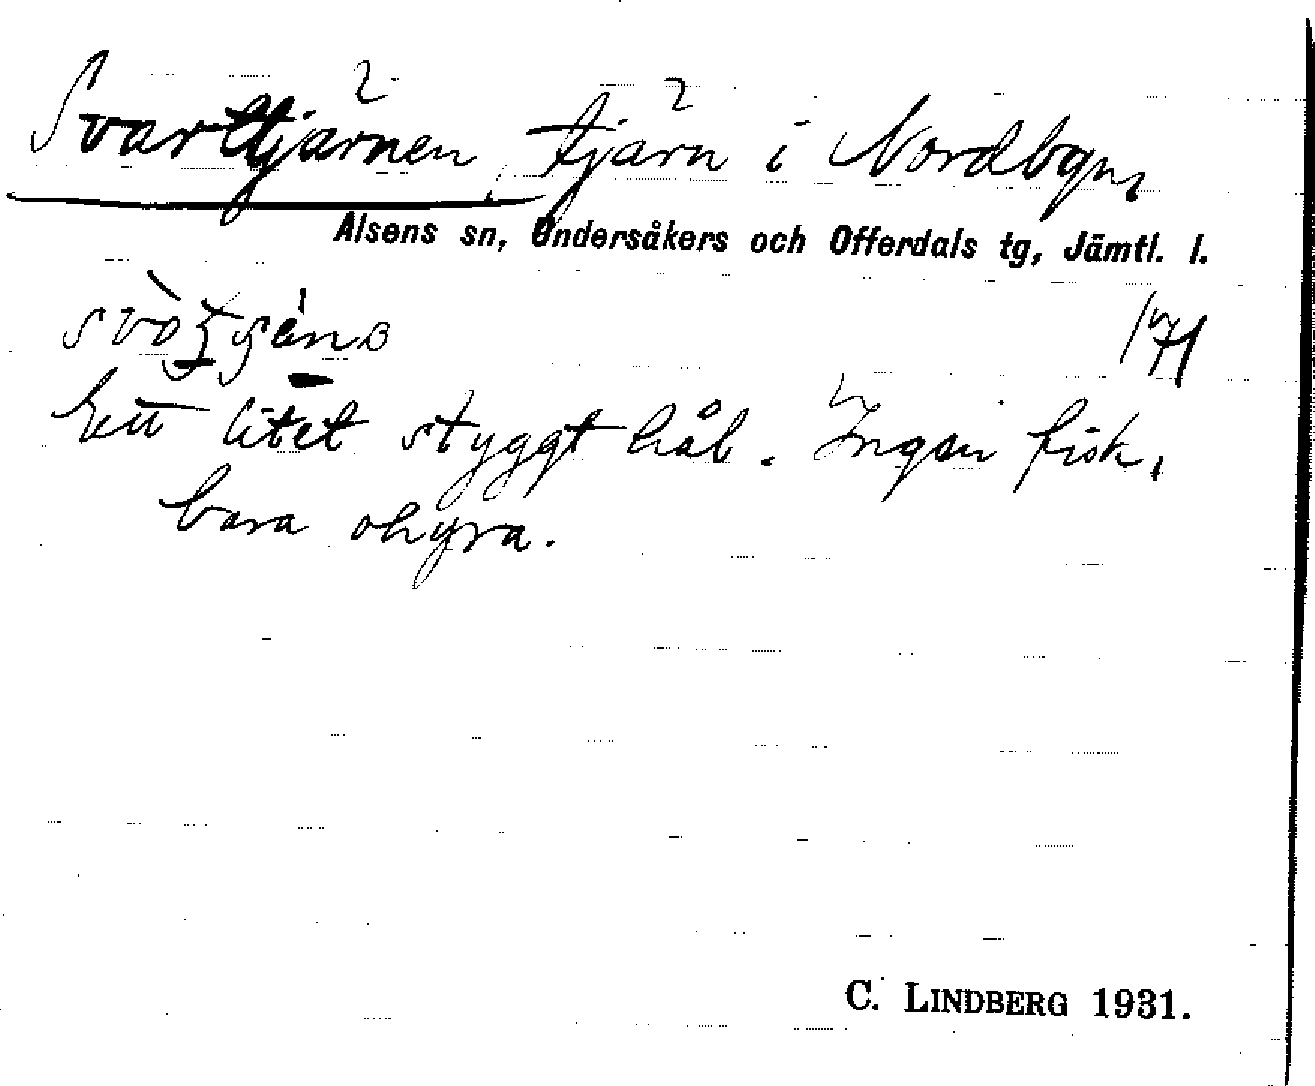 Svarttjärnen, tjärn i Nordbyn,
Alsens sn, Undersåkers och Offerdals tg, Jämtl. l.
Ett litet styggt hål. Ingen fisk,
bara ohyra.
C. LINDBERG 1931.